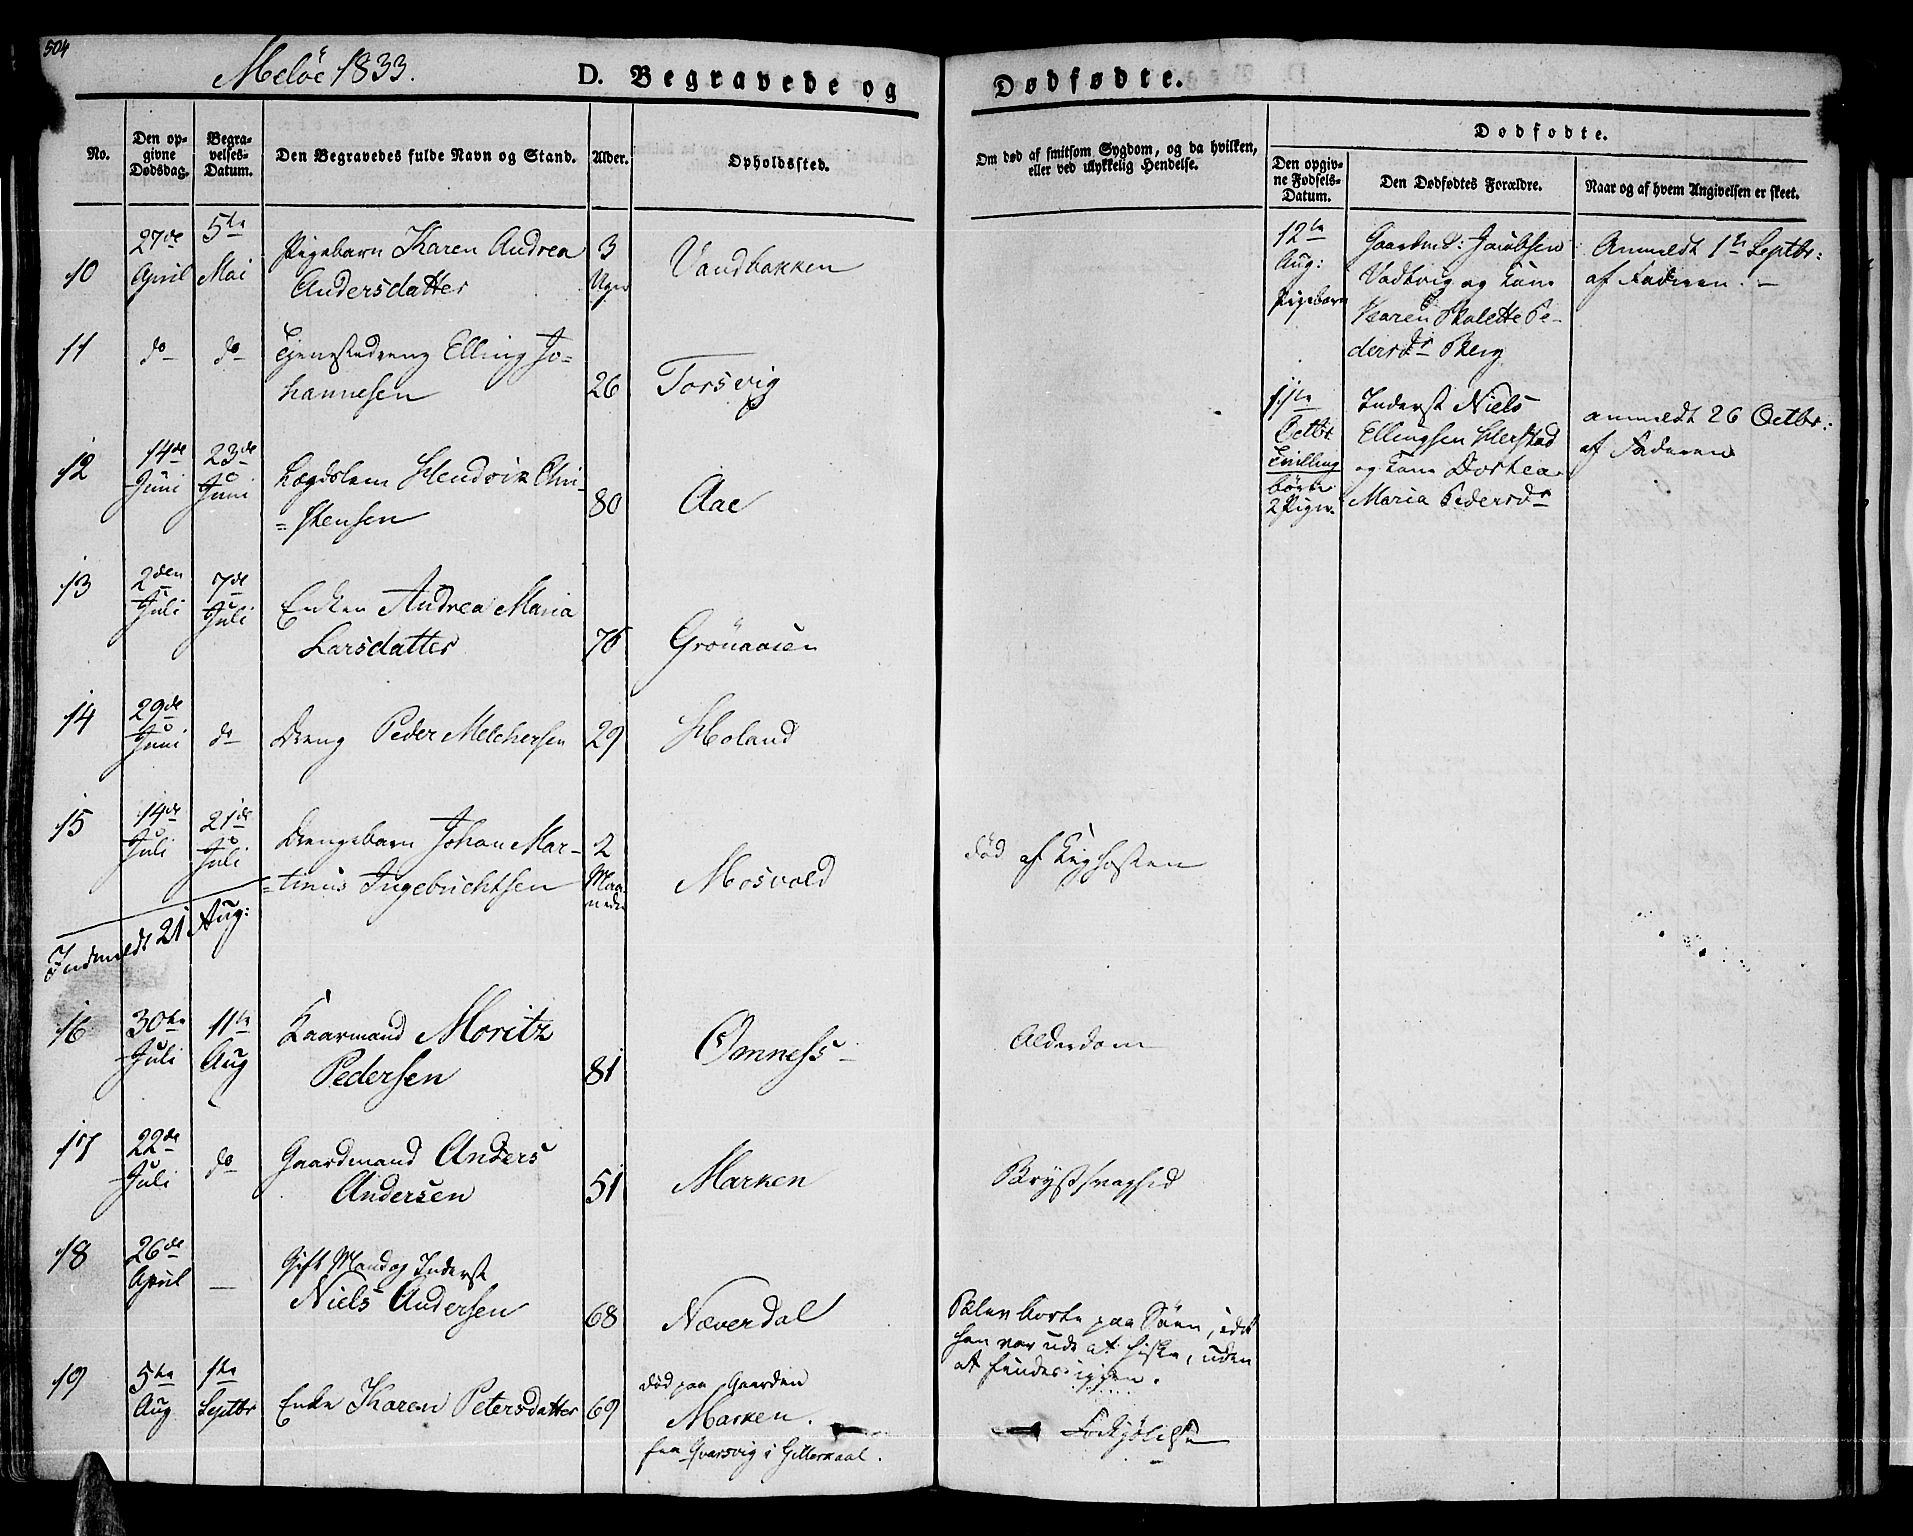 504
Meløe 1833.
D. Begravede og
Dødfødte.
No.
Den opgivne Dødsdag.
Begravelses-Datum.
Den Begravedes fulde Navn og Stand.
Alder.
Opholdssted.
Om død af smitsom Sygdom, og da hvilken,
eller ved ulykkelig Hendelse.
Dødfødte.
Den opgivne Fødsels-Datum.
Den Dødfødtes Forældre.
Naar og af hvem Angivelsen er skeet.
10
27de April
5te Mai
Pigebarn Karen Andrea
Andersdatter
3 Uger
Vandbakken
11
do
do
Tjenestedreng Elling Jo-
hannesen
26
Torsvig
12
14de Juni
23de Juni
Lægdslem Hendrik Chri-
=stensen
80
Aae
13
2den Juli
7de Juli
Enken Andrea Maria
Larsdatter
76
Grønaasen
14
29de Juni
do
Dreng Peder Melchersen
29
Holand
15
14de Juli
21de Juli
Drengebarn Johan Mar-
=tinus Ingebrichtsen
2 Maaneder
Mosvold
død af Kighosten
Indmeldt 21 Aug:
16
30te Juli
11te Aug
Kaarmand Moritz
Pedersen
81
Ømness
Alderdom
17
22de Juli
do
Gaardmand Anders
Andersen
51
Marken
Brystsvaghed
18
26de April
—
Gift Mand og Inderst
Niels Andersen
68
Næverdal
Blev borte paa Søen, idet
han var ude at fiske, uden
at findes igjen.
19
5te Aug
1te Septbr
Enke Karen Petersdatter
69
død paa Gaarden
Marken.
fra Qvarsvig i Gilleskaal.
Forkjølelse
12te
Aug:
Pigebarn
Gaardmd: Jacobsen
og Kone
Karen Malette Pe-
dersdr Berg
Anmeldt 1te Septbr:
af Faderen. –
11te
Octbr
Tvilling
børn
2 Piger.
Inderst Niels
Ellingsen
og Kone Dorthea
Maria Pedersdr
anmeldt 26 Octbr:
af Faderen